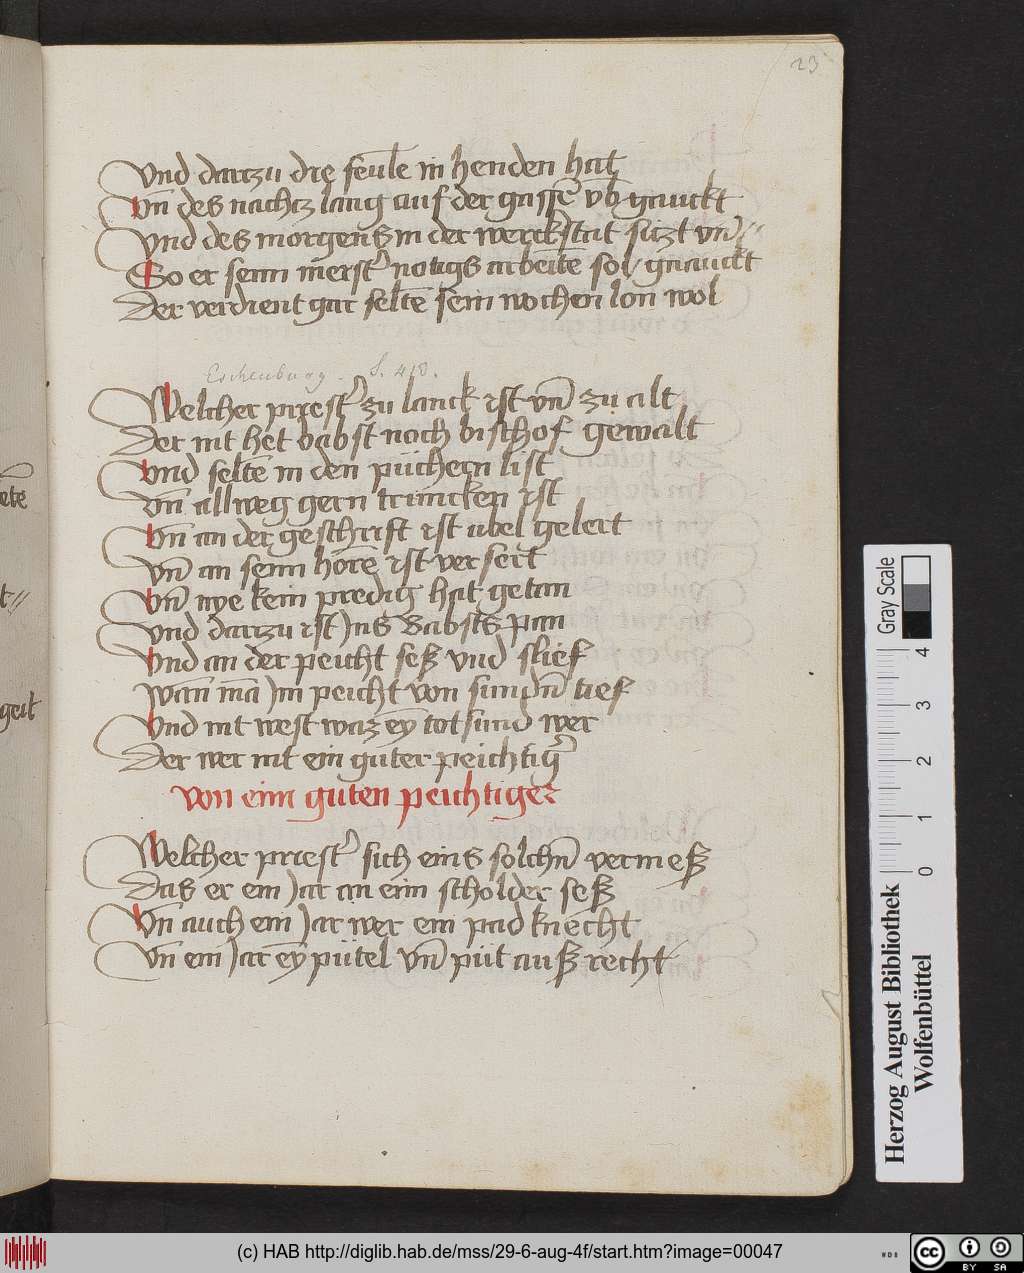 23
Vnd darzu dre feule in henden hat
Vn̄ des nachtz lang auf der gassē vb gauckt
Vnd des morgens in der werckstat sitzt vn̄
So er seim meist' notigs arbeitē sol / gnauckt
Der verdient gar seltē sein wochen lon wol
Eschenburg. S. 418.
Welcher priest' zu lanck ist vn̄ zu alt
Der nit het babst noch bischof gewalt
Vnd seltē in den püchern list
Vn̄ allweg gern truncken ist
Vn̄ an der geschrift ist übel gelert
Vn̄ an seim hōrē ist versert
Vn̄ nye kein predig hat getan
Vnd darzu ist Jns Babsts pan
Vnd an der peicht seß vnd slief
Wan̄ mā Jm peicht von sundn̄ tief
Vnd nit west waz ey̅ totsund wer
Der wer nit ein guter peichtig'
Von eim guten peichtiger
Welcher priest' sich eins solchn̄ vermeß
Das er ein Jar an eim scholder seß
Vn̄ auch ein Jar wer ein padknecht
Vn̄ ein Jar ey̅ pütel vn̄ püt auß recht
ete
t//
geit
Herzog August Bibliothek
Wolfenbüttel
Gray Scale
0 1 2 3 4
(c) HAB http://diglib.hab.de/mss/29-6-aug-4f/start.htm?image=00047
WDB
cc BY SA